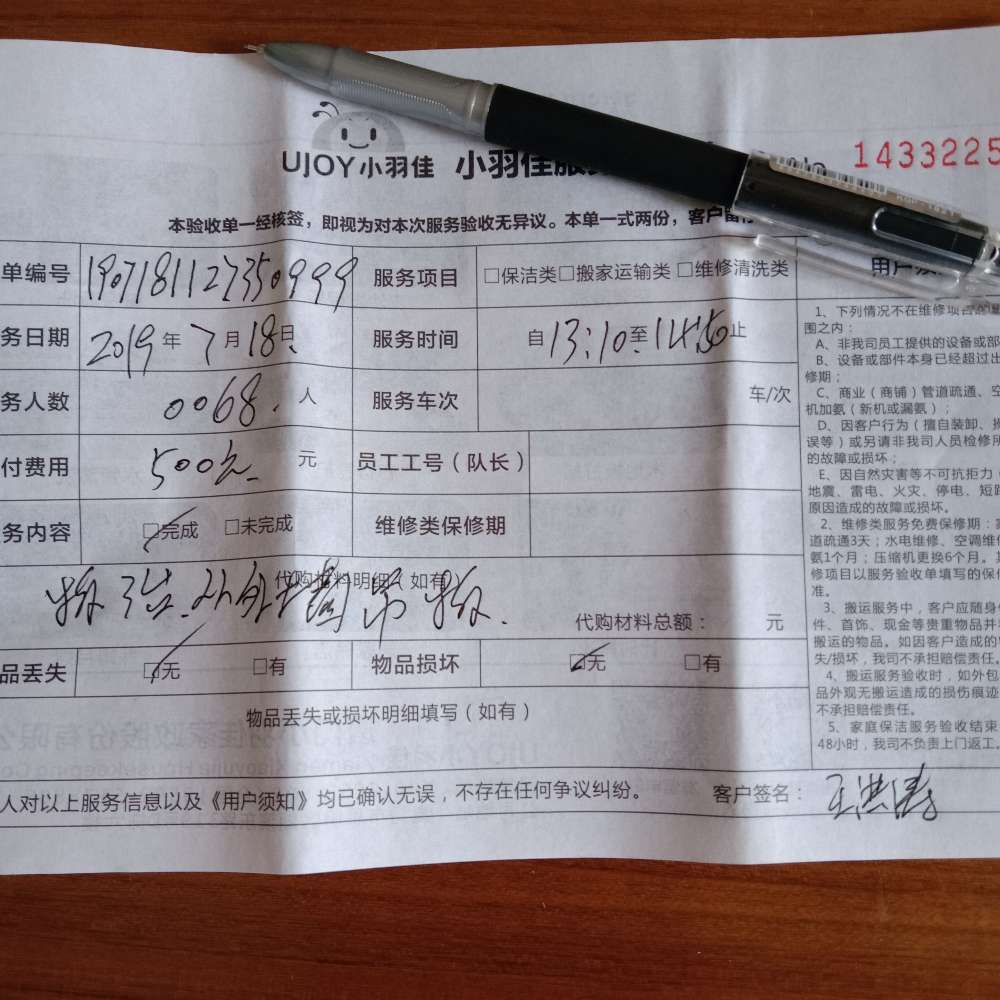 UJOY小羽佳 小羽佳服 1433225
本验收单一经核签，即视为对本次服务验收无异议。本单一式两份，客户留
单编号 190718112735099 9 服务项目 □保洁类□搬家运输类 □维修清洗类
务日期 2019年7月18日 服务时间 自13:10至14:50止
务人数 0068. 人 服务车次 车/次
付费用 500元 元 员工工号（队长）
务内容 □完成 □未完成 维修类保修期
代购材料明细（如有）
代购材料总额： 元
品丢失 □无 □有 物品损坏 □无 □有
物品丢失或损坏明细填写（如有）
人对以上服务信息以及《用户须知》均已确认无误，不存在任何争议纠纷。 客户签名： 王洪涛
用户须
1、下列情况不在维修项目的
围之内：
A、非我司员工提供的设备或部
B、设备或部件本身已经超过出
修期；
C、商业（商铺）管道疏通、空
机加氨（新机或漏氨）；
D、因客户行为（擅自装卸、操
误等）或另请非我司人员检修所
的故障或损坏；
E、因自然灾害等不可抗拒力（
地震、雷电、火灾、停电、短路
原因造成的故障或损坏。
2、维修类服务免费保修期：
道疏通3天；水电维修、空调维修
氨1个月；压缩机更换6个月。
修项目以服务验收单填写的保修
准。
3、搬运服务中，客户应随身
件、首饰、现金等贵重物品并
搬运的物品。如因客户造成的
失/损坏，我司不承担赔偿责任。
4、搬运服务验收时，如外包
品外观无搬运造成的损伤痕迹
不承担赔偿责任。
5、家庭保洁服务验收结束
48小时，我司不负责上门返工。